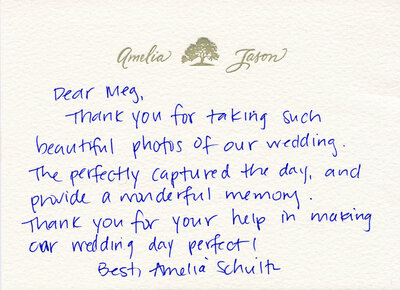 Amelia Jason
Dear Meg,
Thank you for taking such
beautiful photos of our wedding.
The perfectly captured the day, and
provide a wonderful memory.
Thank you for your help in making
our wedding day perfect!
Best, Amelia Schultz